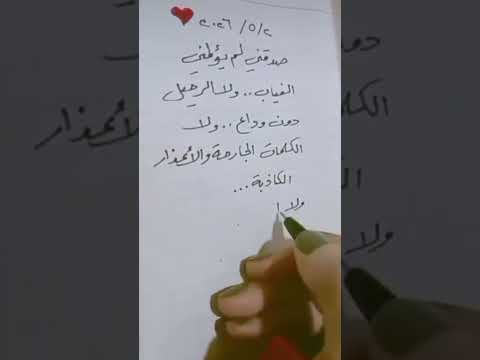 ٢٠٢٦/٥/٢
صدقني لم يؤلمني
الغياب.. ولا الرحيل
دون وداع.. ولا
الكلمات الجارحة والأعذار
الكاذبة...
ولا ا